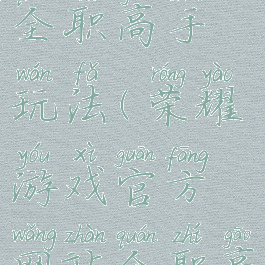 全职高手
wán fǎ róng yào
玩法(荣耀
yóu xì guān fāng
游戏官方
wǎng zhàn quán zhí gāo